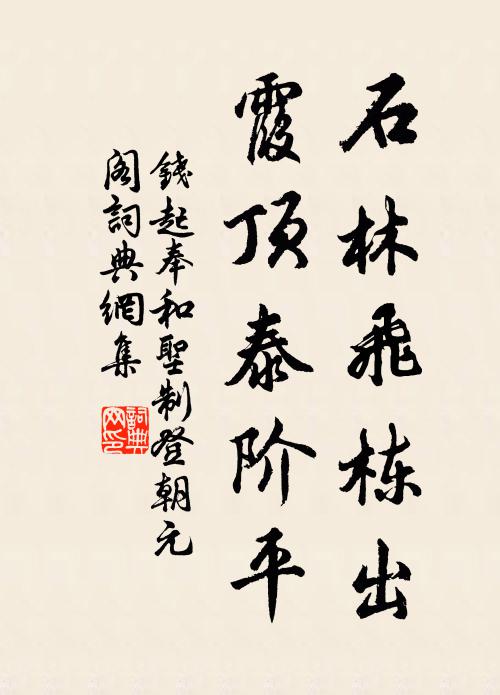 石林飛栋出
霞顶泰阶平
錢起奉和聖制登朝元
阁詞典網集
詞典
网印